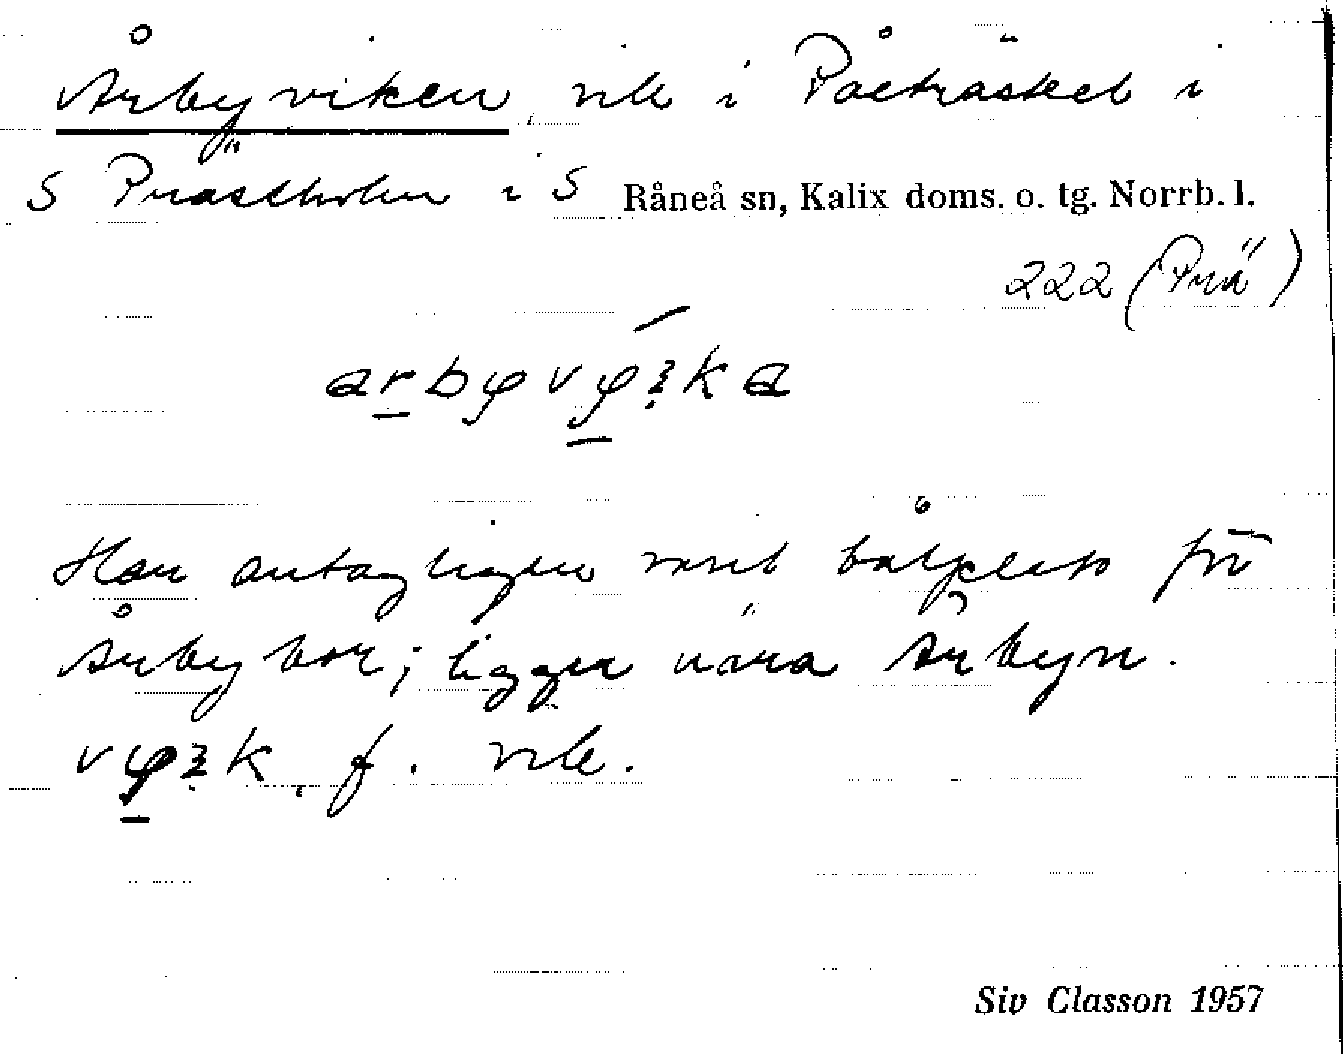 Årbyviken, vik i Påeträsket i
S Prästholm i S Råneå sn, Kalix doms. o. tg. Norrb. l.
222 (Prä)
Har antagligen varit båtplats för
Årbybor; ligger nära Årbyn.
f. vik.
Siv Classon 1957